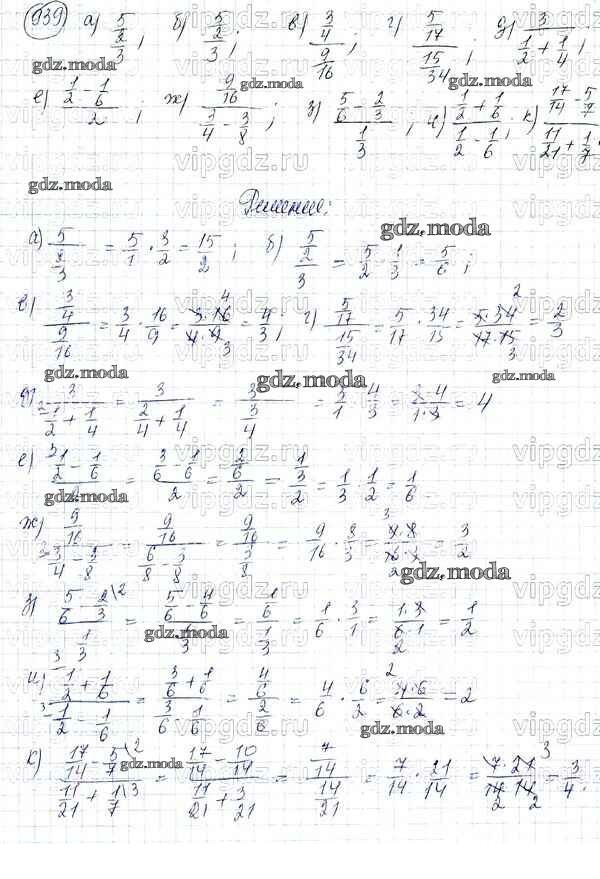 939 а) 5/(2/3); б) (5/2)/3; в) (3/4)/(9/16); г) (5/17)/(15/34); д) 3/(1/2 + 1/4);
е) (1/2 - 1/6)/2; ж) (9/16)/(3/4 - 3/8); з) (5/6 - 2/3)/(1/3); и) (1/2 + 1/6)/(1/2 - 1/6). к) (17/14 - 5/7)/(11/21 + 1/7).
Решение:
а) 5/(2/3) = 5/1 · 3/2 = 15/2; б) (5/2)/3 = 5/2 · 1/3 = 5/6;
в) (3/4)/(9/16) = 3/4 · 16/9 = 4/3; г) (5/17)/(15/34) = 5/17 · 34/15 = (5·34)/(17·15) = 2/3
д) 3/(1/2 + 1/4) = 3/(2/4 + 1/4) = 3/(3/4) = 3/1 · 4/3 = (3·4)/(1·3) = 4
е) (1/2 - 1/6)/2 = (3/6 - 1/6)/2 = (2/6)/2 = (1/3)/2 = 1/3 · 1/2 = 1/6
ж) (9/16)/(3/4 - 3/8) = (9/16)/(6/8 - 3/8) = (9/16)/(3/8) = 9/16 · 8/3 = (9·8)/(16·3) = 3/2
з) (5/6 - 2/3)/(1/3) = (5/6 - 4/6)/(1/3) = (1/6)/(1/3) = 1/6 · 3/1 = (1·3)/(6·1) = 1/2
и) (1/2 + 1/6)/(1/2 - 1/6) = (3/6 + 1/6)/(3/6 - 1/6) = (4/6)/(2/6) = 4/6 · 6/2 = (4·6)/(6·2) = 2
к) (17/14 - 5/7)/(11/21 + 1/7) = (17/14 - 10/14)/(11/21 + 3/21) = (7/14)/(14/21) = 7/14 · 21/14 = (7·21)/(14·14) = 3/4.
gdz.moda
vipgdz.ru